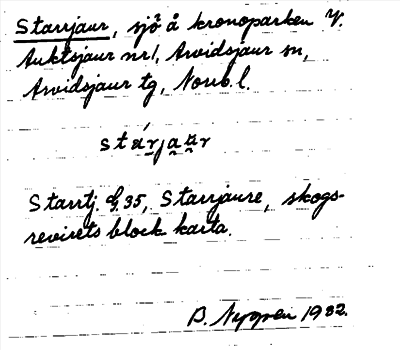 Starrjaur, sjö å kronoparken V.
Auktsjaur nr 1, Arvidsjaur sn,
Arvidsjaur tg, Norrb. l.
stárjau̯r
Starrtj. G. 35, Starrjaure, skogs-
revirets block karta.
B. Nygren 1932.